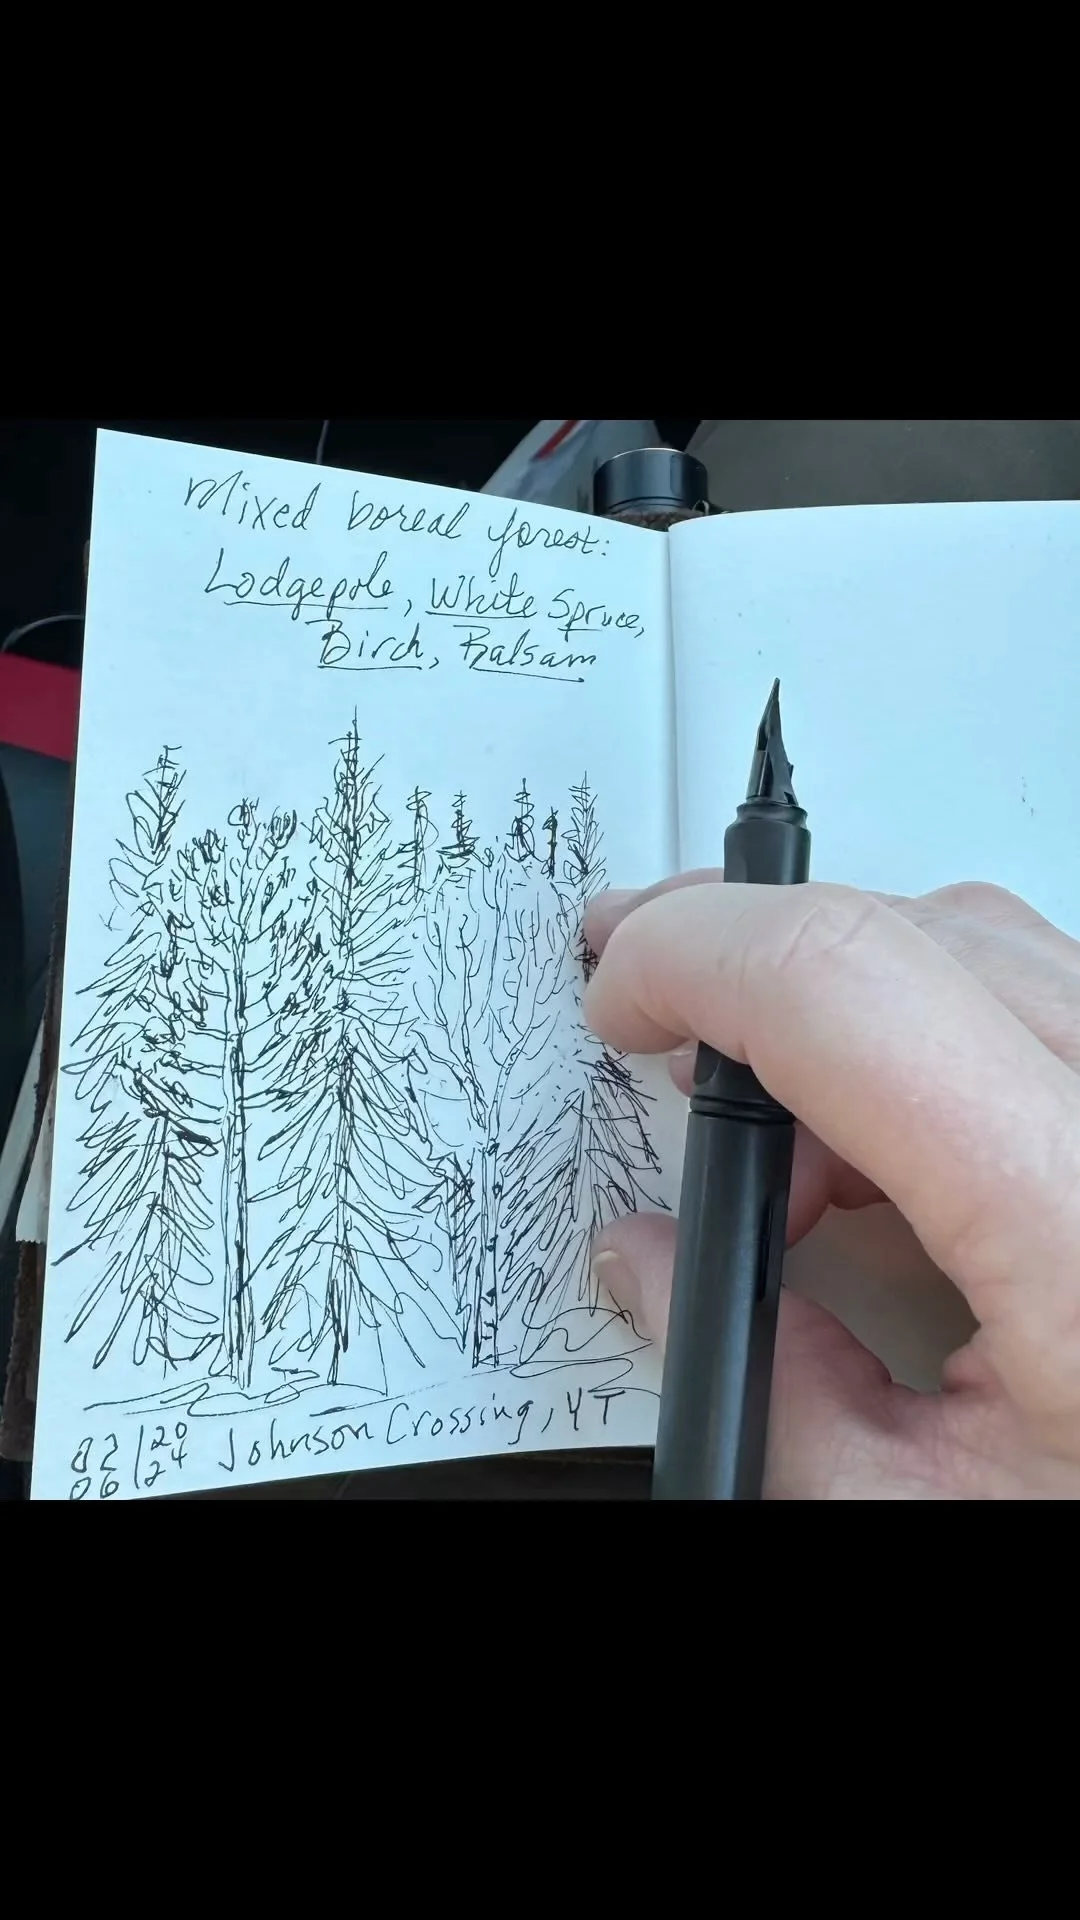 Mixed boreal forest:
Lodgepole, White Spruce,
Birch, Balsam
02/20 Johnson Crossing, YT
06/24